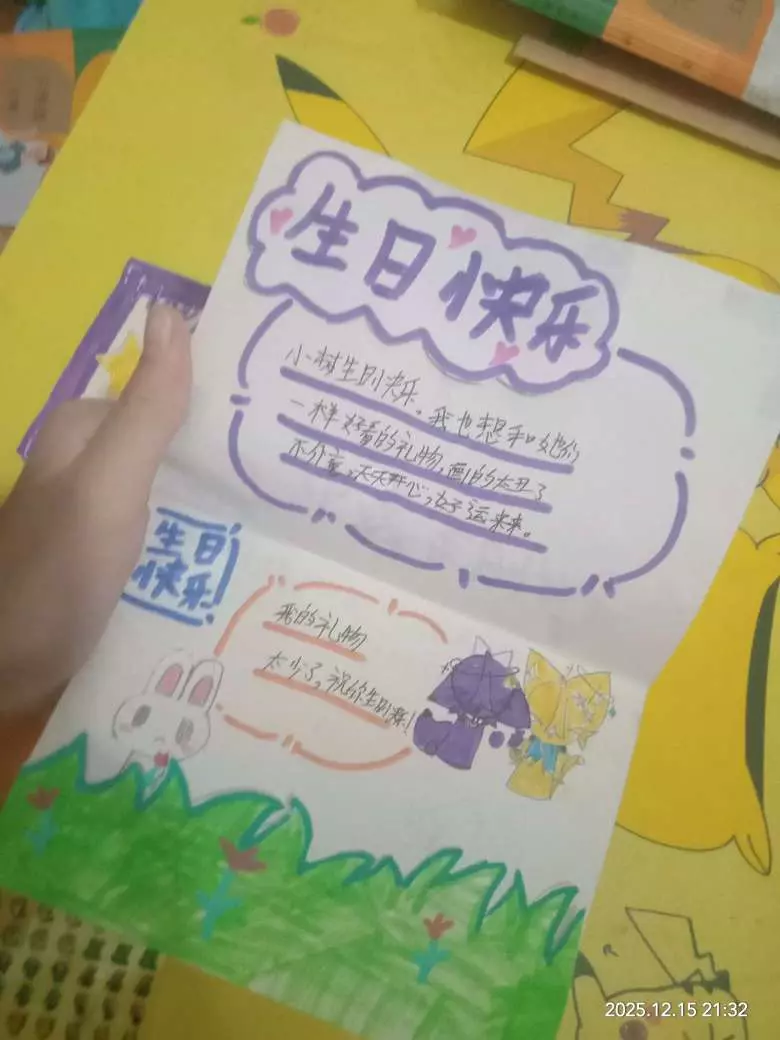 生日快乐
小树生日快乐。我也想和她们
一样好看的礼物,画的太丑了
不介意,天天开心,好运来来。
生日
快乐
我的礼物
太少了,祝你生日快乐!
2025.12.15 21:32